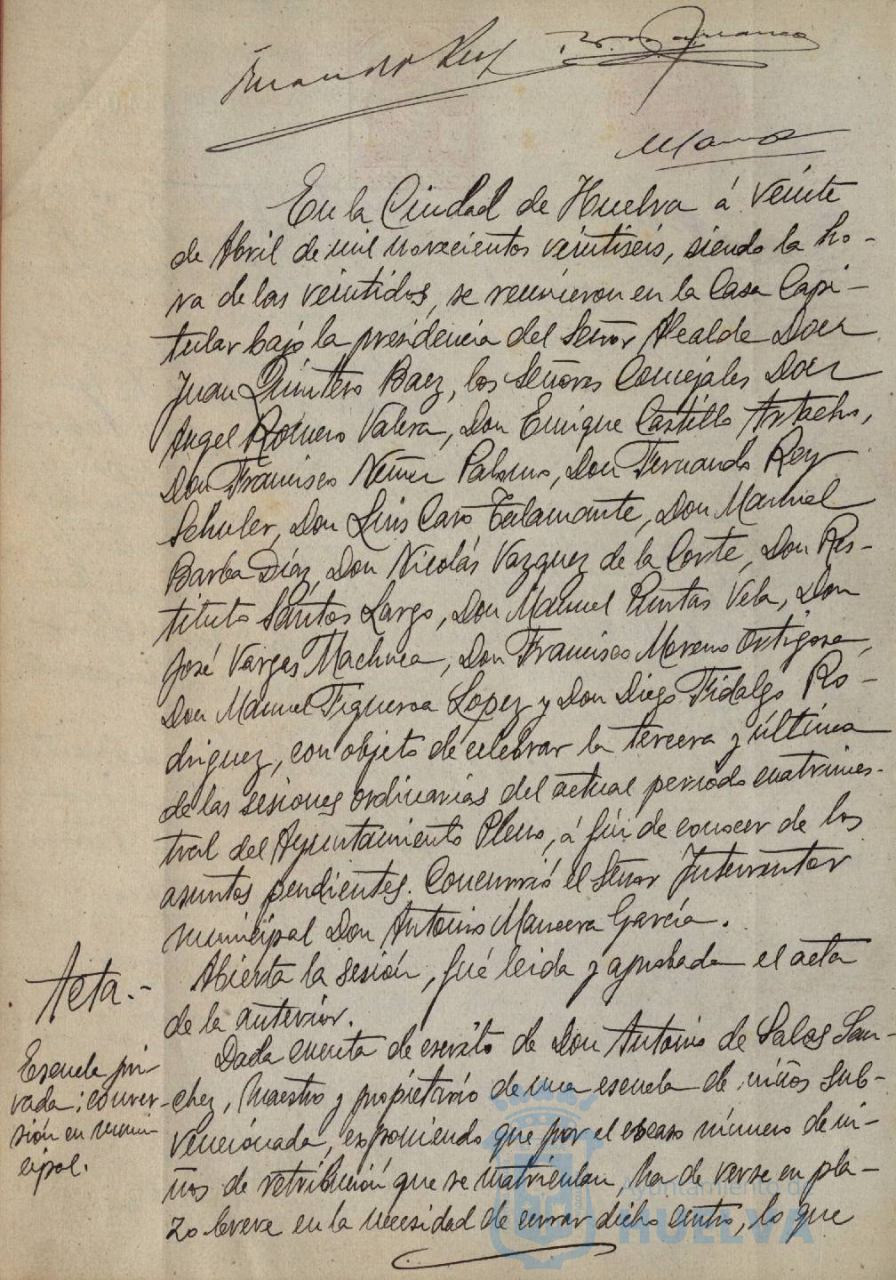 Fernando Rey
En la Ciudad de Huelva á veinte
de Abril de mil novecientos veintiseis, siendo la ho-
ra de las veintidos, se reunieron en la Casa Capi-
tular bajo la presidencia del Señor Alcalde Don
Juan Quintero Baez, los Señores Concejales Don
Angel Romero Valera, Don Enrique Castillo Artacho,
Don Francisco Núñez Palomo, Don Fernando Rey
Schuler, Don Luis Caro Talamante, Don Manuel
Barba Díaz, Don Nicolás Vazquez de la Corte, Don Res-
tituto Santos Largo, Don Manuel Puntas Vela, Don
José Vargas Machuca, Don Francisco Moreno Ortigosa,
Don Manuel Figueroa Lopez y Don Diego Fidalgo Ro-
driguez, con objeto de celebrar la tercera y última
de las sesiones ordinarias del actual periodo cuatrimes-
tral del Ayuntamiento Pleno, á fín de conocer de los
asuntos pendientes. Concurrió el Señor Interventor
municipal Don Antonio Mancera García.
Acta.-
Abierta la sesión, fué leida y aprobada el acta
de la anterior.
Escuela pri-
vada: conver-
sión en muni-
cipal.
Dada cuenta de escrito de Don Antonio de Salas San-
chez, Maestro y propietario de una escuela de niños sub-
vencionada, exponiendo que por el escaso número de ni-
ños de retribución que se matriculan, ha de verse en pla-
zo breve en la necesidad de cerrar dicho centro, lo que
Ayuntamiento de
HUELVA